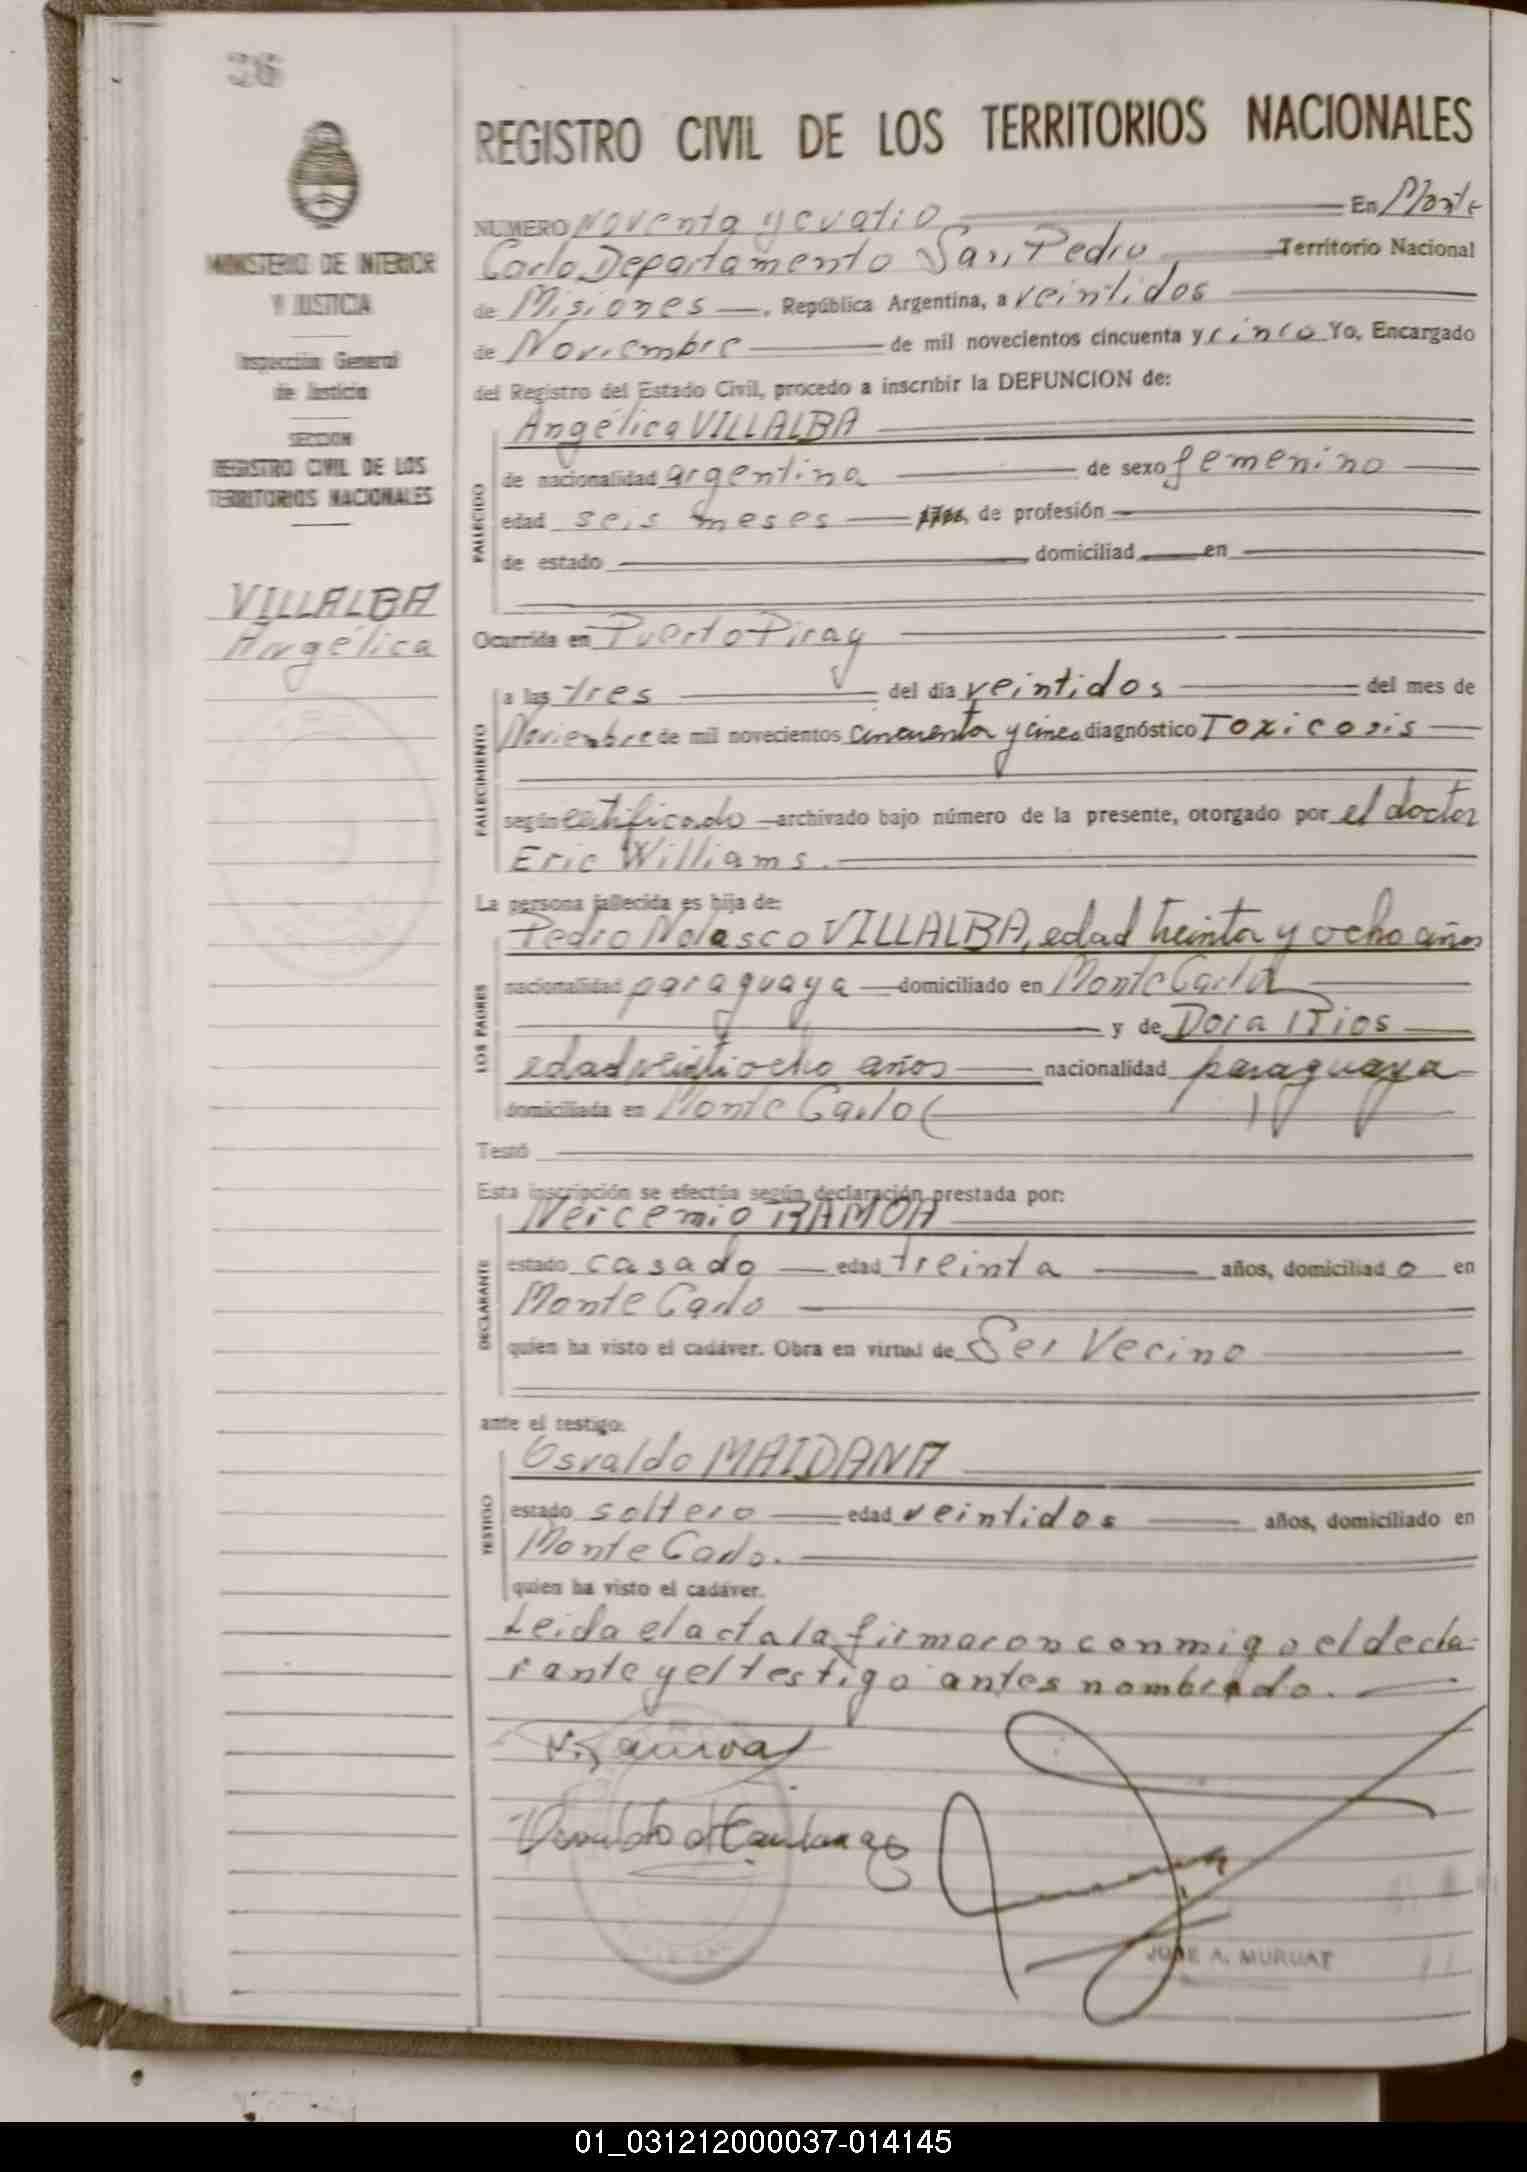 26
MINISTERIO DE INTERIOR
Y JUSTICIA
Inspección General
de Justicia
SECCION
REGISTRO CIVIL DE LOS
TERRITORIOS NACIONALES
VILLALBA
Angélica
REGISTRO CIVIL DE LOS TERRITORIOS NACIONALES
NUMERO Noventa y cuatro En Monte
Carlo Departamento San Pedro Territorio Nacional
de Misiones, República Argentina, a veintidos
de Noviembre de mil novecientos cincuenta y cinco Yo, Encargado
del Registro del Estado Civil, procedo a inscribir la DEFUNCION de:
Angélica VILLALBA
FALLECIDO
de nacionalidad argentina de sexo femenino
edad seis meses años, de profesión
de estado domiciliad en
Ocurrida en Puerto Piray
FALLECIMIENTO
a las tres del día veintidos del mes de
Noviembre de mil novecientos cincuenta y cinco diagnóstico Toxicosis
según certificado archivado bajo número de la presente, otorgado por el doctor
Eric Williams.
La persona fallecida es hija de:
LOS PADRES
Pedro Nolasco VILLALBA, edad treinta y ocho años
nacionalidad paraguaya domiciliado en Monte Carlo
y de Dora Rios
edad veintiocho años nacionalidad paraguaya
domiciliada en Monte Carlo
Testó
Esta inscripción se efectúa según declaración prestada por:
DECLARANTE
RAMOA
estado casado edad treinta años, domiciliado en
Monte Carlo
quien ha visto el cadáver. Obra en virtud de Ser Vecino
ante el testigo:
TESTIGO
Osvaldo MAIDANA
estado soltero edad veintidos años, domiciliado en
Monte Carlo.
quien ha visto el cadáver.
Leida el acta la firmaron conmigo el decla-
rante y el testigo antes nombrado.
JOSE A. MURUAT
01_031212000037-014145